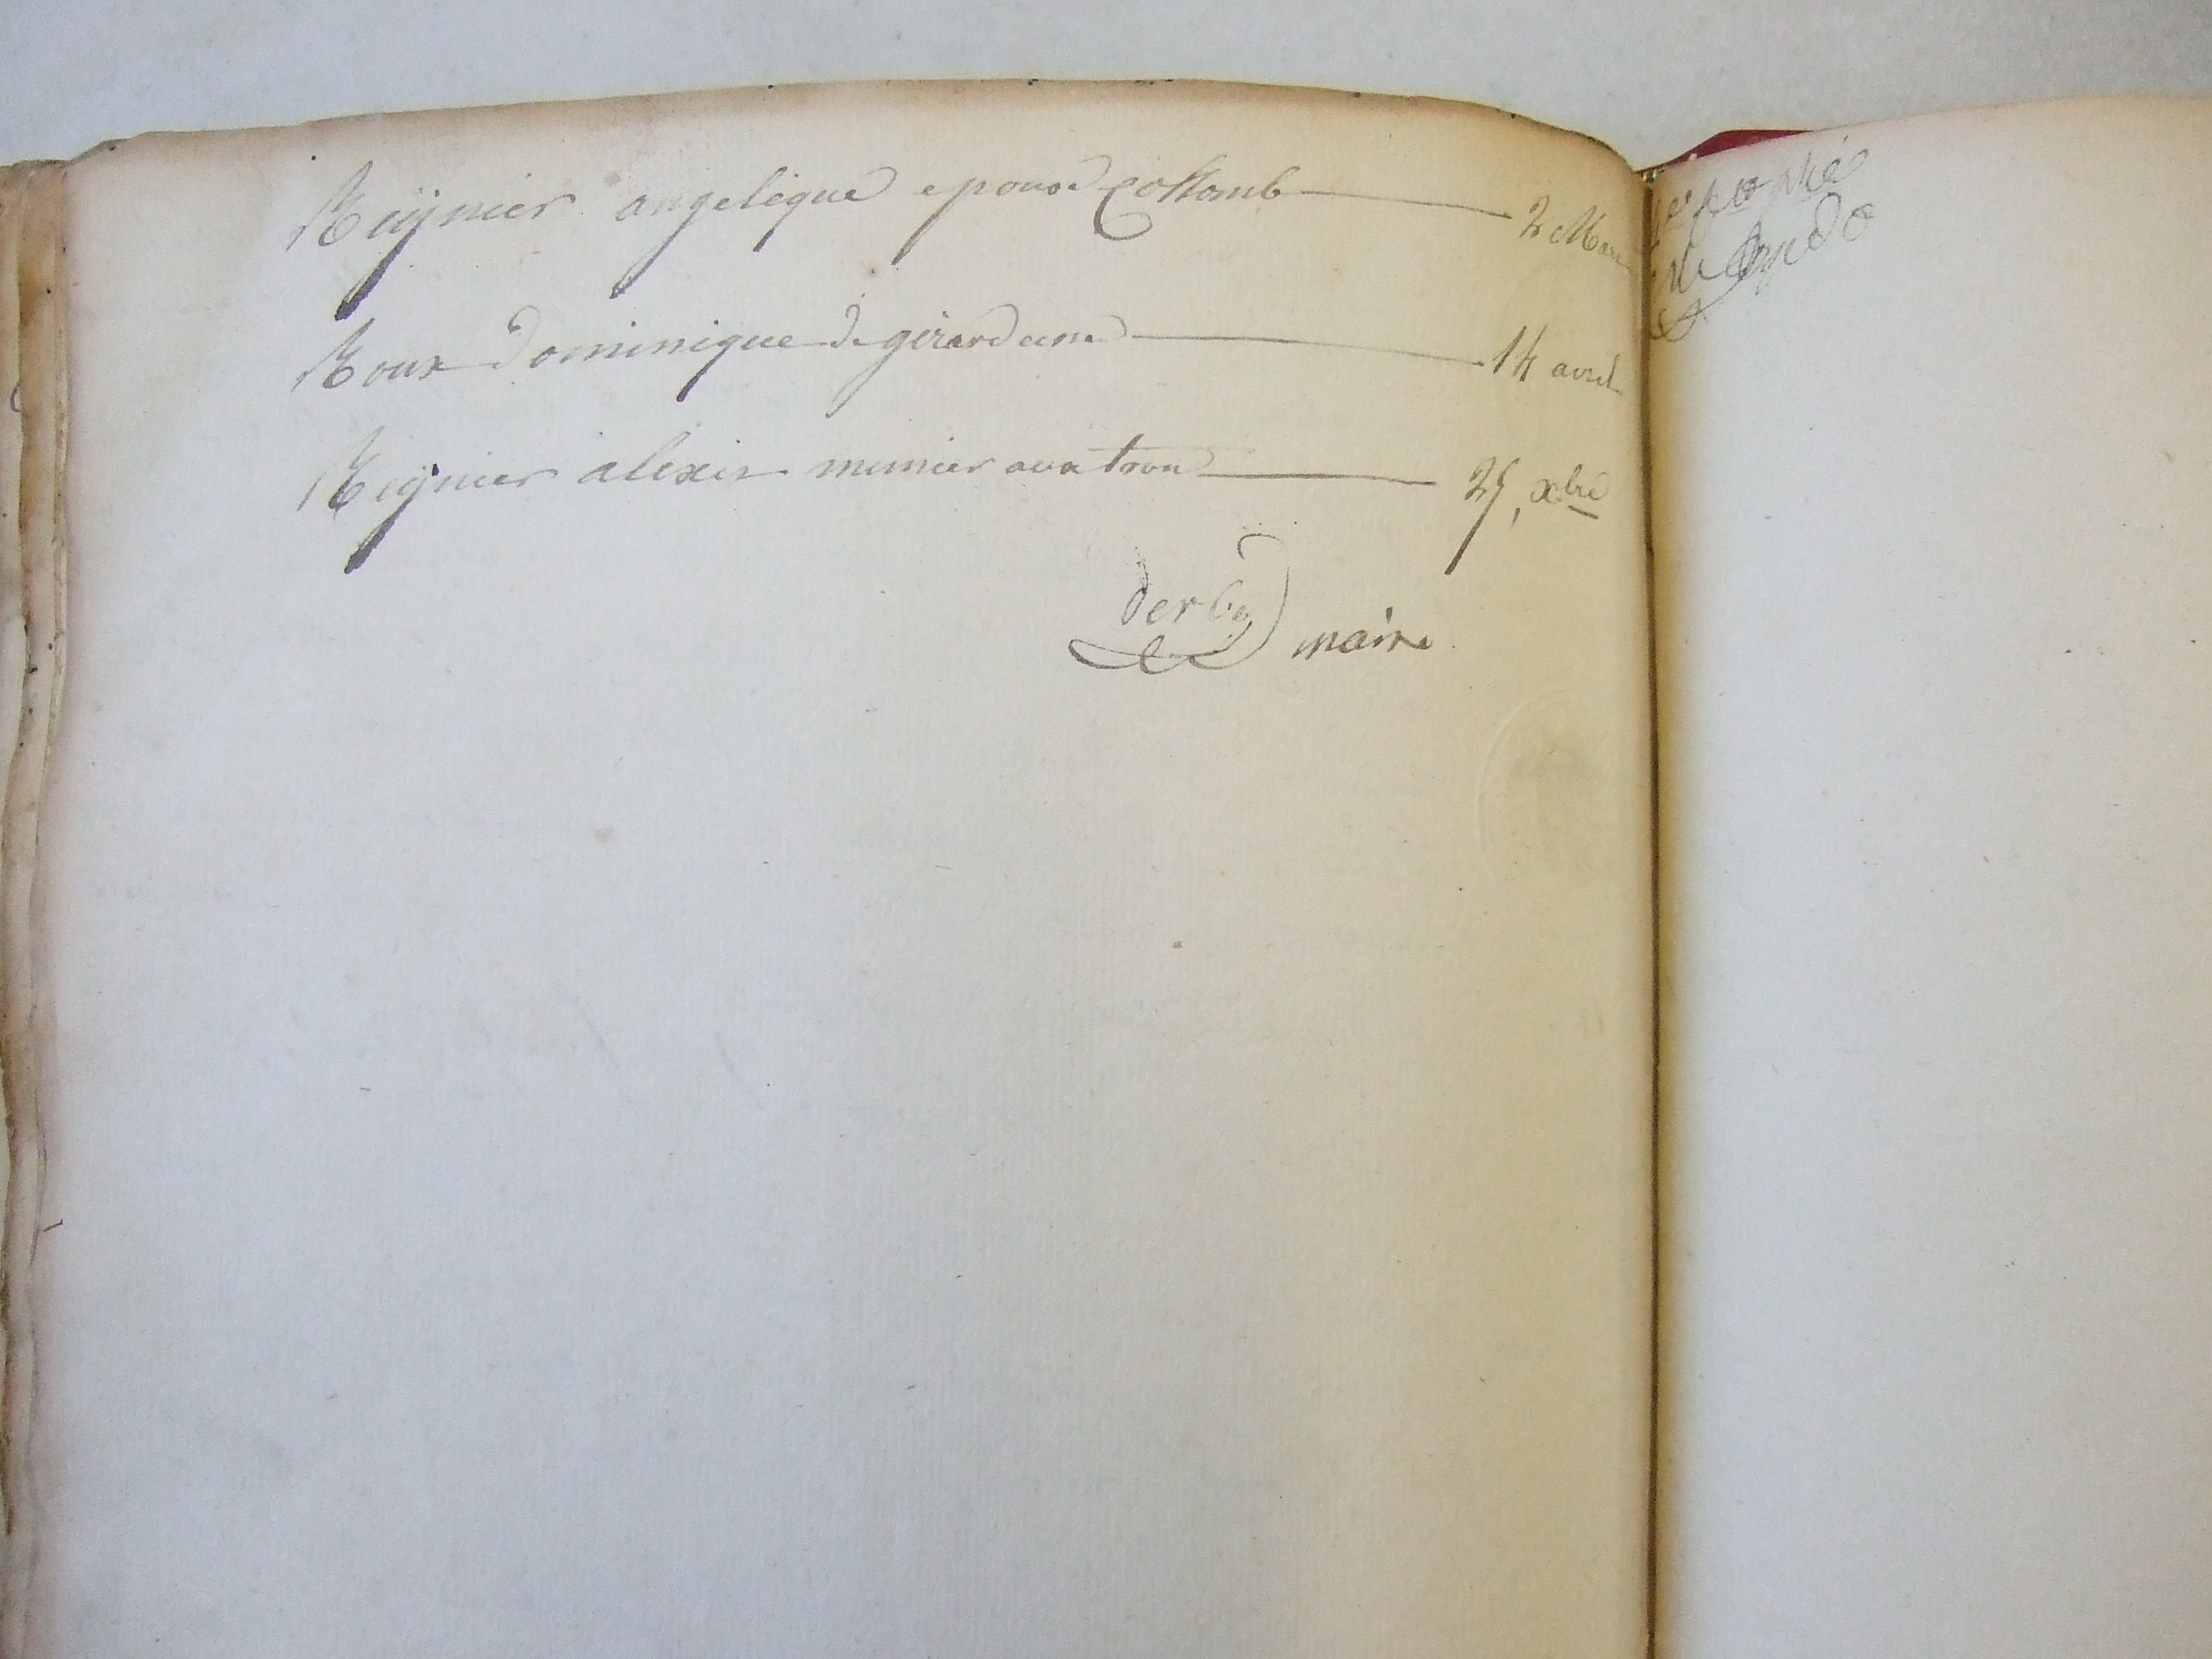 Reÿnier angelique epouse Collomb — 2 Mars
Roux Dominique de girardeine — 14 avril
Reÿnier alexis munier aux trou — 25, xbre
derby maire